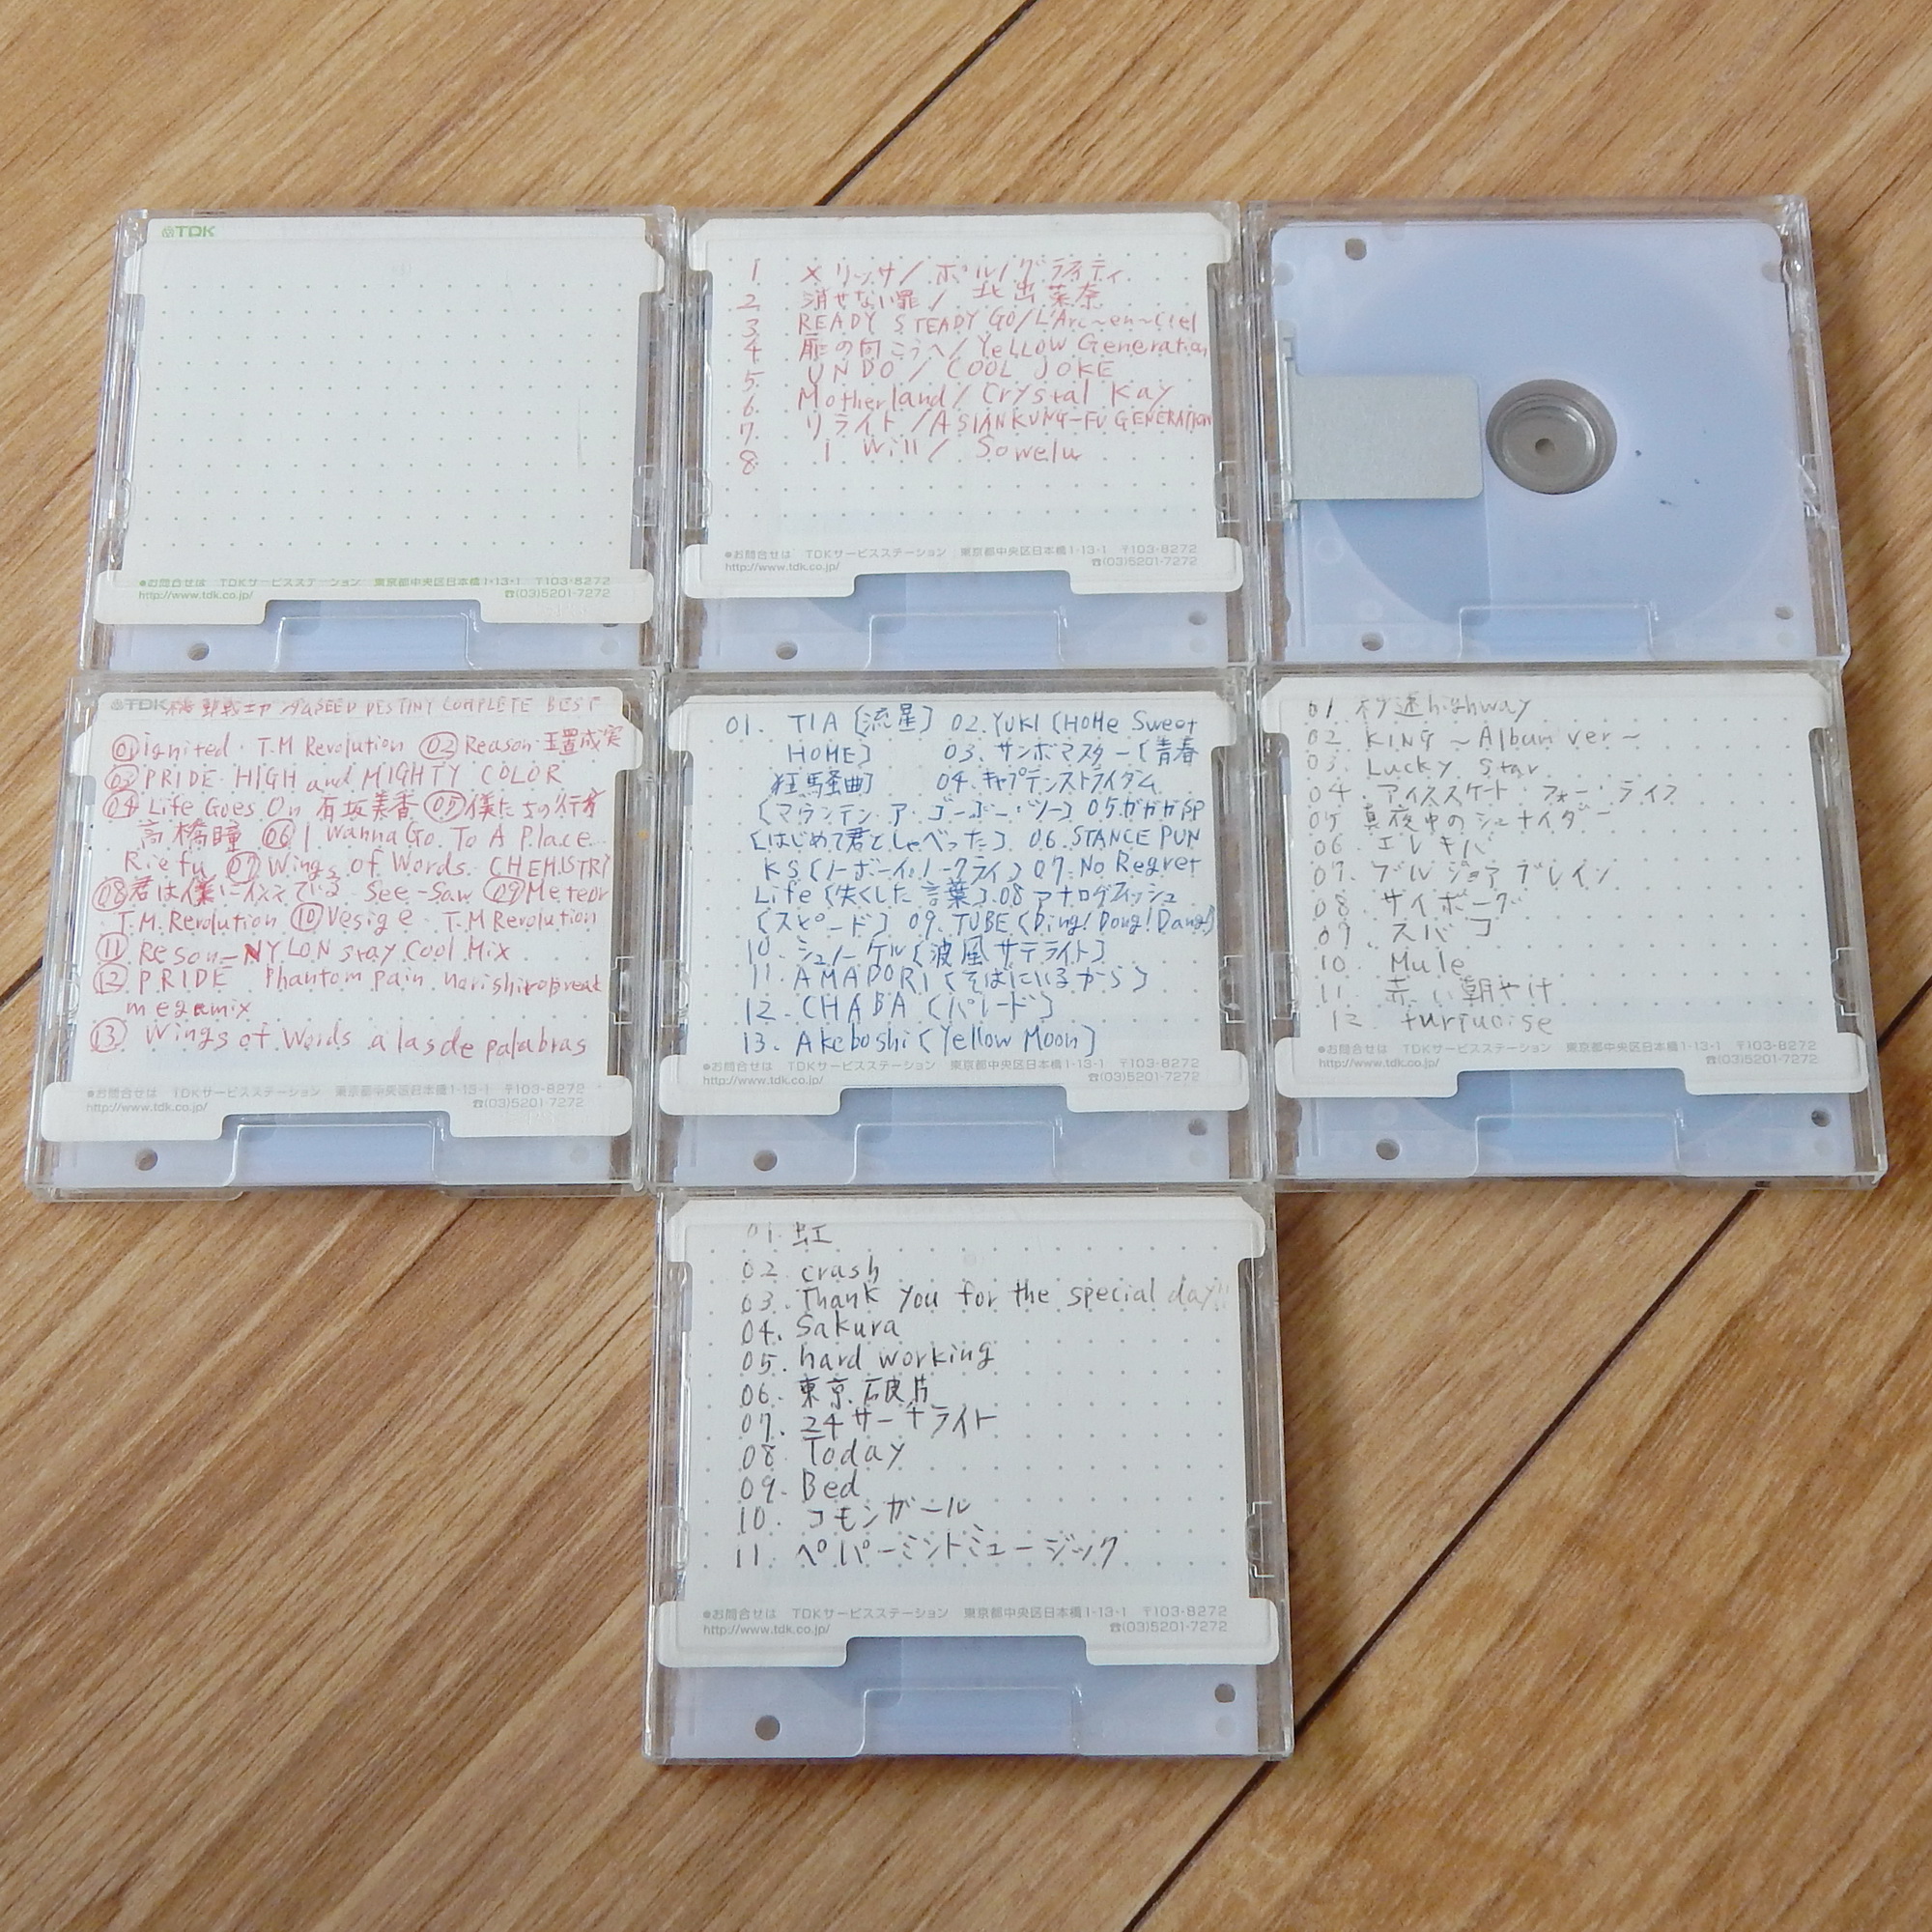 TDK
●お問合せは TDKサービスステーション 東京都中央区日本橋1-13-1 〒103-8272
http://www.tdk.co.jp/ ☎(03)5201-7272
1 メリッサ/ポルノグラフィティ
2 消せない罪/北出菜奈
3 READY STEADY GO/L'Arc~en~Ciel
4 扉の向こうへ/YeLLOW Generation
5. UNDO/COOL JOKE
6. Motherland/Crystal Kay
7. リライト/ASIAN KUNG-FU GENERATION
8. I Will/Sowelu
●お問合せは TDKサービスステーション 東京都中央区日本橋1-13-1 〒103-8272
http://www.tdk.co.jp/ ☎(03)5201-7272
TDK 機動戦士ガンダムSEED DESTINY COMPLETE BEST
①ignited・T.M Revolution ②Reason 玉置成実
③PRIDE HIGH and MIGHTY COLOR
④Life Goes On 有坂美香 ⑤僕たちの行方
高橋瞳 ⑥I Wanna Go To A Place...
Rie fu ⑦Wings of Words CHEMISTRY
⑧君は僕に似ている See-Saw ⑨Meteor
T.M.Revolution ⑩Vesige・T.M Revolution
⑪Reson-NYLON stay Cool Mix
⑫PRIDE Phantom pain narishirobreak
megamix
⑬Wings of Words alasde palabras
●お問合せは TDKサービスステーション 東京都中央区日本橋1-13-1 〒103-8272
http://www.tdk.co.jp/ ☎(03)5201-7272
01. TIA〔流星〕 02.YUKI〔HOMe Sweet
HOME〕 03.サンボマスター〔青春
狂騒曲〕 04.キャプテンストライダム
〔マウンテン・ア・ゴーゴー・ツー〕 05.ガガガSP
〔はじめて君としゃべった〕 06.STANCE PUN
KS〔ノーボーイ・ノークライ〕 07.No Regret
Life〔失くした言葉〕.08 アナログフィッシュ
〔スピード〕 09.TUBE〔Ding!Dong!Dang!〕
10.シュノーケル〔波風サテライト〕
11.AMADORI〔そばにいるから〕
12.CHABA〔パレード〕
13.Akeboshi〔Yellow Moon〕
●お問合せは TDKサービスステーション 東京都中央区日本橋1-13-1 〒103-8272
http://www.tdk.co.jp/ ☎(03)5201-7272
01 秒速highway
02. KING ～Album ver～
03. Lucky Star
04. アイススケート・フォー・ライフ
05 真夜中のシュナイダー
06. エレキバ
07. ブルジョアブレイン
08. サイボーグ
09. スバコ
10. Mule
11. 赤い朝やけ
12. turquoise
●お問合せは TDKサービスステーション 東京都中央区日本橋1-13-1 〒103-8272
http://www.tdk.co.jp/ ☎(03)5201-7272
01. 虹
02. crash
03. Thank you for the special day!!
04. Sakura
05. hard working
06. 東京破片
07. 24サーチライト
08 Today
09. Bed
10. コモンガール
11. ペパーミントミュージック
●お問合せは TDKサービスステーション 東京都中央区日本橋1-13-1 〒103-8272
http://www.tdk.co.jp/ ☎(03)5201-7272